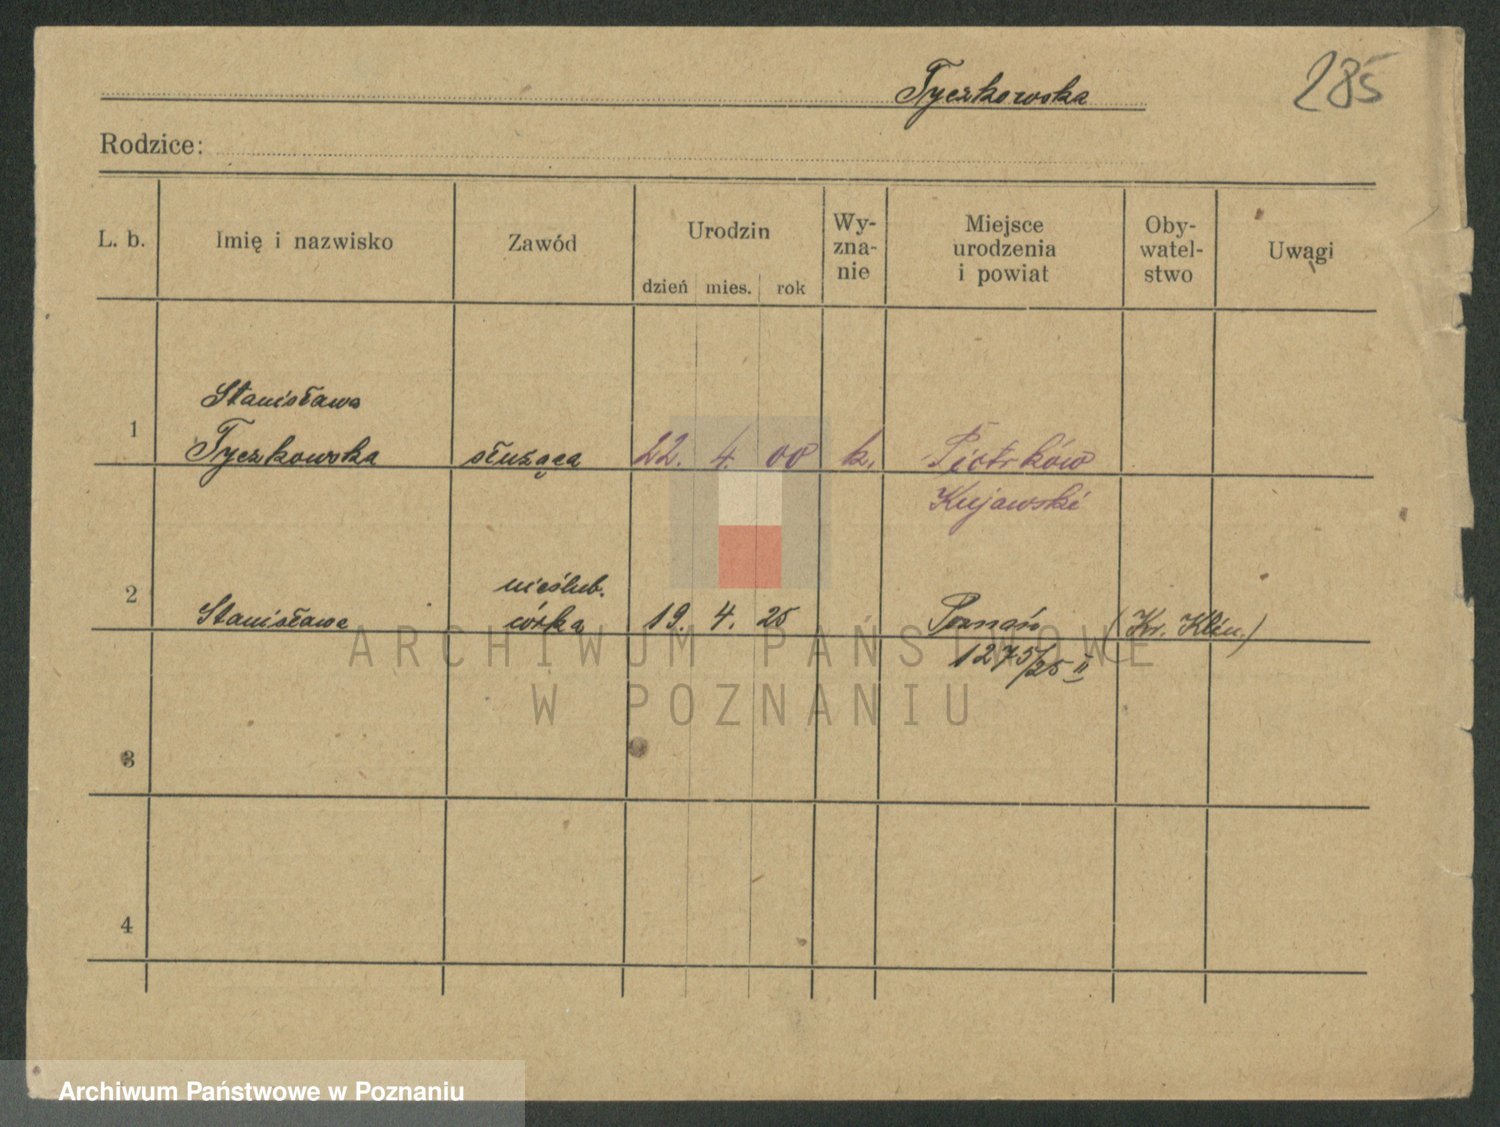 Tyczkowska
285
Rodzice:
L. b. Imię i nazwisko Zawód Urodzin dzień mies. rok Wy-
zna-
nie Miejsce
urodzenia
i powiat Oby-
watel-
stwo Uwagi
Stanisława
1 Tyczkowska służąca 22. 4. 00 k. Piotrków
Kujawski
nieślub.
2 Stanisława córka 19. 4. 25 Poznań (Kr. Klin.)
1275/25 II
3
4
ARCHIWUM PAŃSTWOWE
W POZNANIU
Archiwum Państwowe w Poznaniu